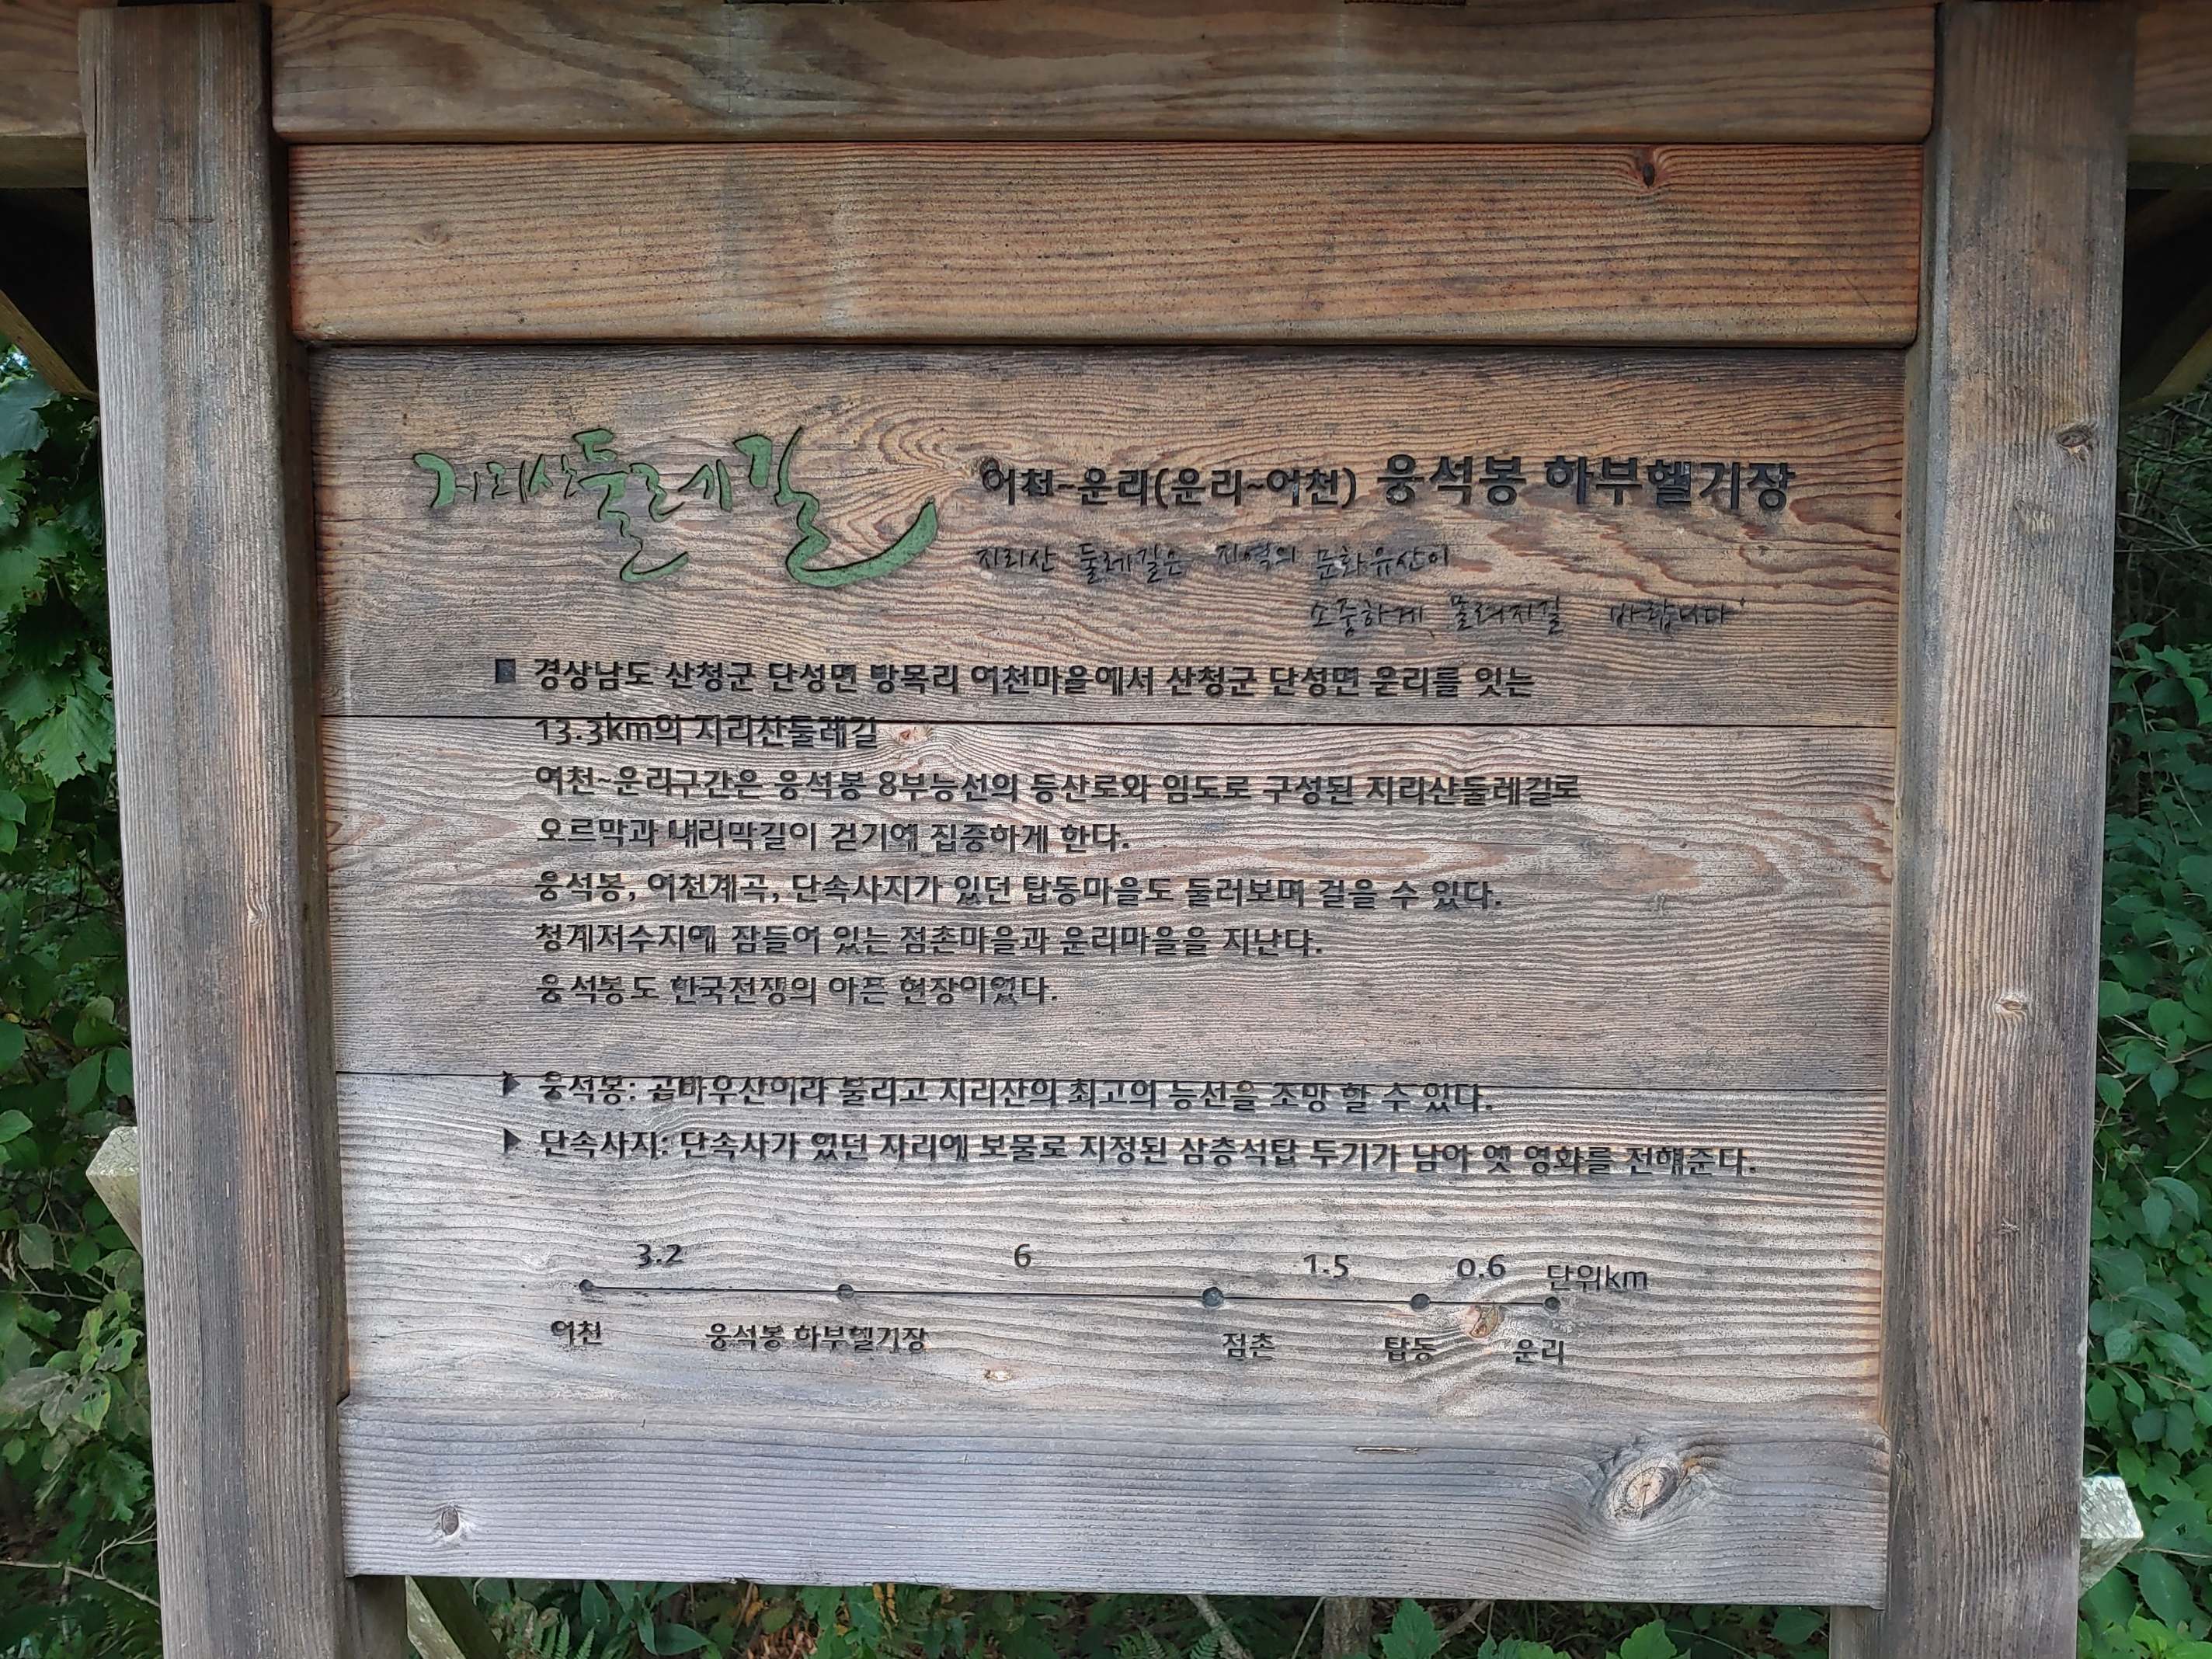 지리산둘레길
어천~운리(운리~어천) 웅석봉 하부헬기장
지리산 둘레길은 지역의 문화유산이
소중하게 물려지길 바랍니다
경상남도 산청군 단성면 방목리 어천마을에서 산청군 단성면 운리를 잇는
13.3km의 지리산둘레길
어천~운리구간은 웅석봉 8부능선의 등산로와 임도로 구성된 지리산둘레길로
오르막과 내리막길이 걷기에 집중하게 한다.
웅석봉, 어천계곡, 단속사지가 있던 탑동마을도 둘러보며 걸을 수 있다.
청계저수지에 잠들어 있는 점촌마을과 운리마을을 지난다.
웅석봉도 한국전쟁의 아픈 현장이었다.
▶ 웅석봉: 곰바우산이라 불리고 지리산의 최고의 능선을 조망 할 수 있다.
▶ 단속사지: 단속사가 있던 자리에 보물로 지정된 삼층석탑 두기가 남아 옛 영화를 전해준다.
3.2 6 1.5 0.6 단위km
어천 웅석봉 하부헬기장 점촌 탑동 운리